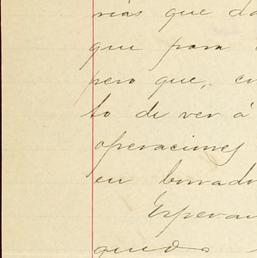 rías que da
que para
pero que, co
to de ver á
operaciones
en borrado
Esperan
quedo